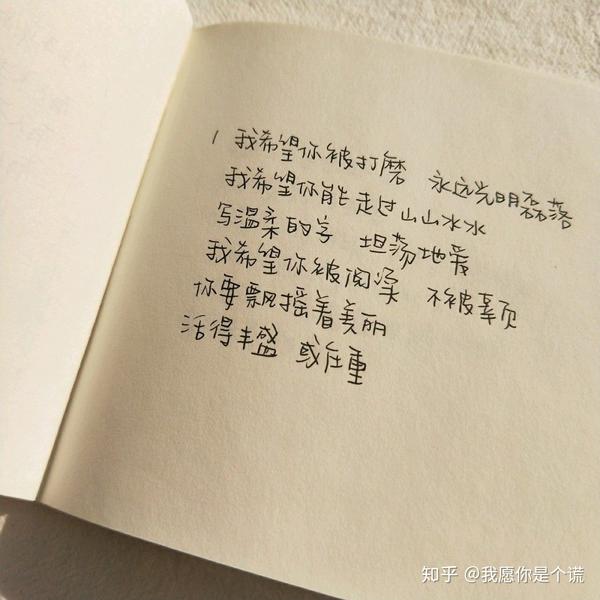 1 我希望你被打磨 永远光明磊落
我希望你能走过山山水水
写温柔的字 坦荡地爱
我希望你被 不被
你要飘摇着美丽
活得丰盛 或庄重
知乎 @我愿你是个谎